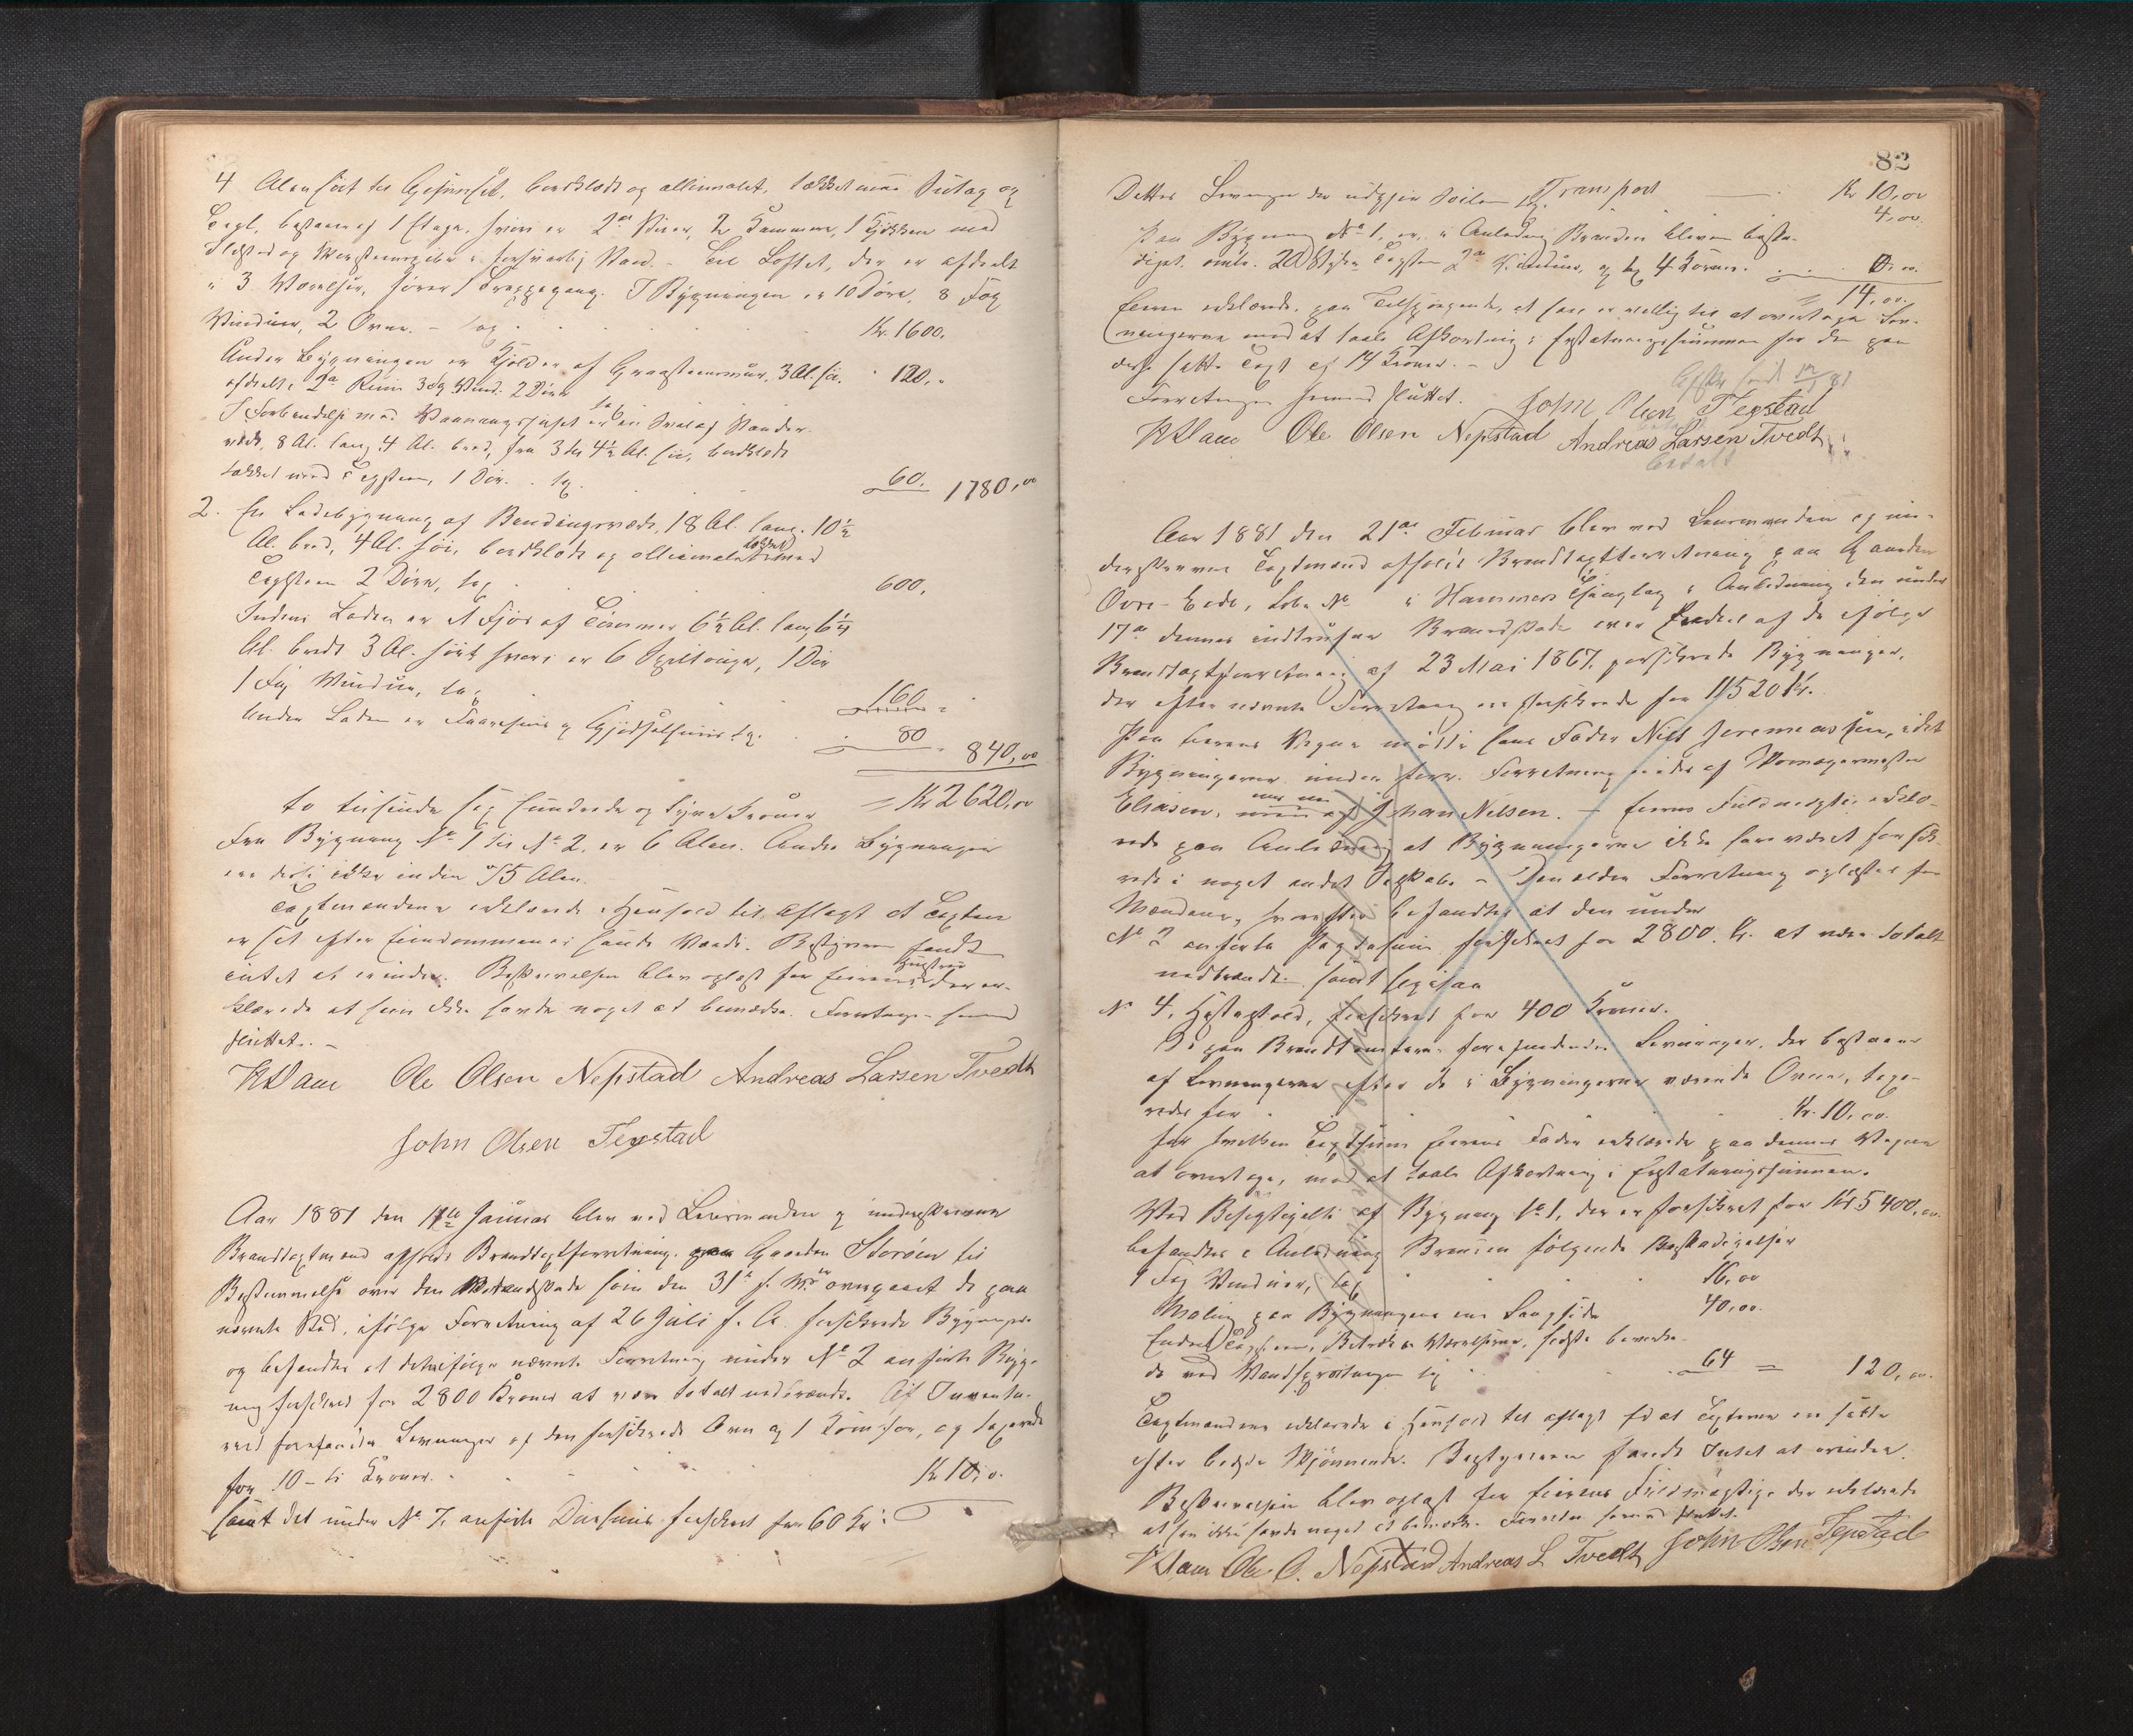 4 Alen høi til Gesimset, bordklædt og alliemalet, tækket med Sutag og
Tegl, bestaar af 1 Etage, hvori er 2de Stuer, 2 Kammere, 1 Kjøkken med
Ildsted og Skorsteenspibe i forsvarlig Stand. - Til Loftet, der er afdeelt
i 3 Værelser, fører 1 Trappegang. I Bygningen er 10 Døre, 8 Fag
Vinduer, 2 Ovne. - tax. Kr. 1600,
Under Bygningen er Kjelder af Graasteensmuur, 3 Al. høi, 120, "
afdeelt i 2de Rum 3 Fag Vind. 2 Døre
I Forbindelse med Vaaningshuset er en Sval af Stander-
værk, 8 Al. lang, 4 Al. bred, fra 3 til 4½ Al. høi, bordklædt
tækket med Tegsteen, 1 Dør. tax. 60. 1780,00
2. En Ladebygning af Bendingsværk, 18 Al. lang, 10½
Al. bred, 4 Al. høi, bordklædt og alliemalet tækket med
Tegelsteen 2 Døre, tax 600,
Inden Laden er et Fjøs af Tømmer 6½ Al. lang 6¼
Al. bredt 3 Al. høit hvori er 6 Spiltouge, 1 Dør
1 Fag Vindue, tax 160
Under Laden er Faarehuus og Gjødselhuus tax. 80 840,00
to tusinde sex hundrede og tyve Kroner = Kr 2620,00
Fra Bygning No 1 til No 2 er 6 Alen. Andre Bygninger
ere disse ikke inden 75 Alen.
Taxtmændene erklærede i Henhold til aflagt Ed Taxten
er sat efter Eiendommenes sande Værdi. Bestyreren fandt
intet at erindre. Beskrivelsen blev oplæst for Eierens Hustrue der er-
klærede at hun ikke havde noget at bemærke. Forretningen hermed
sluttet. -
Ole Olsen Nepstad Andreas Larsen Tvedt
John Olsen Tepstad
Aar 1881 den Januar blev ved Lensmanden og underskrevne
Brandtaxtmænd afholdt Brandtaxtforretning paa Gaarden Storøen til
Bestemmelse over den Brandskade som den 31te f. M. er overgaaet de paa
nævnte Sted, ifølge Forretning af 26 Juli f. A. forsikrede Bygninger
og befandtes at det ifølge nævnte Forretning under No 2 anførte Byg-
ning forsikret for 2800 Kroner at være totalt nedbrændt. Af Inventa-
ried forefandtes Levninger af den forsikrede Ovn og 1 Komfør, og taxerede
for 10 - ti Kroner. Kr 10,0.
samt det under No 7 anførte forsikret for 60 Kr:
82
Dettes Levninger der udgjør Transport Kr 10,00
4,00.
Paa Bygning No 1, er i Anledning Branden bleven beska-
diget, omtr. 20 Stykker Tagsten 2de Vinduer, og tax 4 Kroner.
= 14,00.
Eieren erklærede, paa Tilspørgende, at han er villig til at overtage Lev-
ningerne mod at taale Afkortning i Erstatningssummen for den paa
disse satte Taxt af 14 Kroner. -
Forretningen hermed sluttet. John Olsen Tepstad
Ole Olsen Nepstad Andreas Larsen Tvedt
betalt
Aar 1881 den 21de Februar blev ved Lensmanden og un-
derskrevne Taxtmænd afholdt Brandtaxtforretning paa Gaarden
Øvre-Eide, Løbe No i Hammers Thinglag i Anledning den under
17de dennes indtrufne Brandskade over Endeel af de ifølge
Brandtaxtforretning af 23 Mai 1867 forsikrede Bygninger,
der efter nævnte Forretning ere forsikrede for 11520 Kr.
Paa Eierens Vegne mødte hans Fader Niels Jeremeassen, idet
Bygningerne under forr. Forretning eiedes af
Eliasen, men nu af Johan Nilsen. - Eierens Fuldmægtig erklæ-
rede paa Anledning at Bygningerne ikke har været forsik-
rede i noget andet Selskab. - Den ældre Forretning oplæstes for
Mændene, hvorefter befandtes at den under
No 2 anførte forsikret for 2800. Kr. at være totalt
nedbrændt. samt ligesaa
No 4. Hestestald, forsikret for 400 Kroner.
De paa Brandtomten forefundne Levninger, der bestaaer
af Levningerne efter de i Bygningerne værende Ovne, taxe-
redes for Kr. 10,00.
for hvilken Taxtsum Eierens Fader erklærede paa dennes Vegne
at overtage, mod at taale Afkortning i Erstatningssummen.
Ved Besigtigelse af Bygning No 1, der er forsikret for Kr. 5400,00
befandtes i Anledning Branden følgende Beskadigelser
9 Fag Vinduer, tax 16,00
Maling paa Bygningens ene Langside 40,00.
Endeel Tagsteen, Betræk i Værelserne,
de ved Vandsprøitningen tax 64 = 120,00.
Taxtmændene erklærede i Henhold til aflagt Ed at Taxterne ere satte
efter bedste Skjønnende. Bestyreren fandt Intet at erindre.
Beskrivelsen blev oplæst for Eierens Fuldmægtige der erklærede
at han ikke havde noget at bemærke. Forretn. hermed sluttet.
Ole O. Nepstad Andreas L Tvedt John Olsen Tepstad